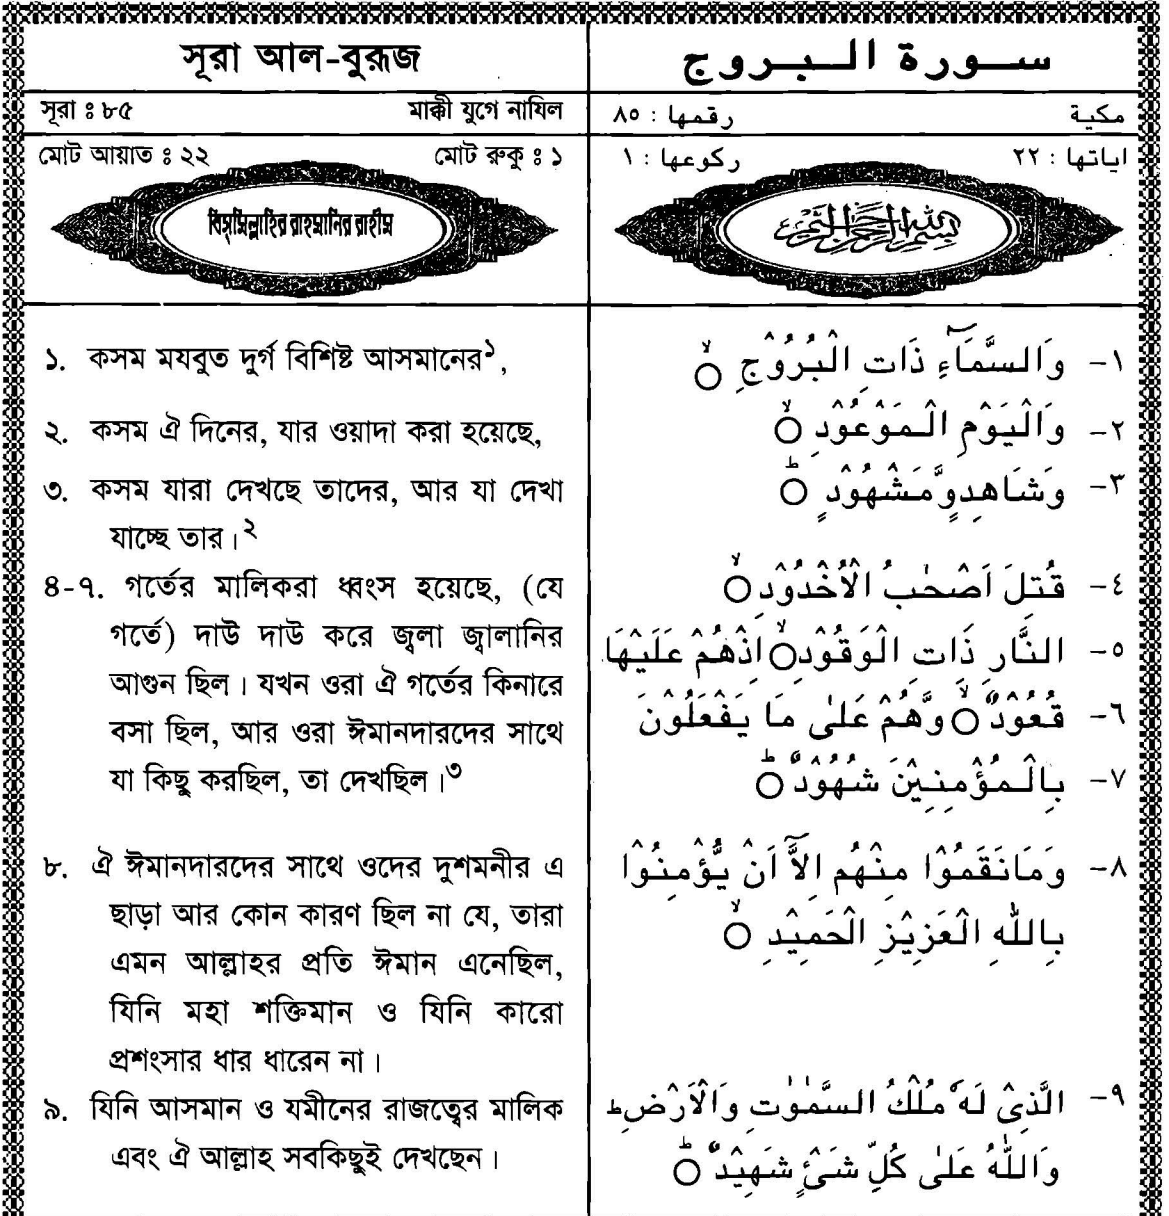 সূরা আল-বুরূজ
সূরা ঃ ৮৫ মাক্কী যুগে নাযিল
মোট আয়াত ঃ ২২ মোট রুকু ঃ ১
বিস্মিল্লাহির রাহমানির রাহীম
১. কসম মযবুত দুর্গ বিশিষ্ট আসমানের১,
২. কসম ঐ দিনের, যার ওয়াদা করা হয়েছে,
৩. কসম যারা দেখছে তাদের, আর যা দেখা
যাচ্ছে তার।২
৪-৭. গর্তের মালিকরা ধ্বংস হয়েছে, (যে
গর্তে) দাউ দাউ করে জ্বলা জ্বালানির
আগুন ছিল। যখন ওরা ঐ গর্তের কিনারে
বসা ছিল, আর ওরা ঈমানদারদের সাথে
যা কিছু করছিল, তা দেখছিল।৩
৮. ঐ ঈমানদারদের সাথে ওদের দুশমনীর এ
ছাড়া আর কোন কারণ ছিল না যে, তারা
এমন আল্লাহর প্রতি ঈমান এনেছিল,
যিনি মহা শক্তিমান ও যিনি কারো
প্রশংসার ধার ধারেন না।
৯. যিনি আসমান ও যমীনের রাজত্বের মালিক
এবং ঐ আল্লাহ সবকিছুই দেখছেন।
سورة البروج
مكية رقمها : ٨٥
اياتها : ٢٢ ركوعها : ١
بسم الله الرحمن الرحيم
١- وَالسَّمَآءِ ذَاتِ الْبُرُوْجِ ۙ
٢- وَالْيَوْمِ الْمَوْعُوْدِ ۙ
٣- وَشَاهِدٍوَّمَشْهُوْدٍ ؕ
٤- قُتِلَ اَصْحٰبُ الْاُخْدُوْدِ ۙ
٥- النَّارِ ذَاتِ الْوَقُوْدِ ۙ اِذْهُمْ عَلَيْهَا
٦- قُعُوْدٌ ۙ وَّهُمْ عَلٰى مَا يَفْعَلُوْنَ
٧- بِالْمُؤْمِنِيْنَ شُهُوْدٌ ؕ
٨- وَمَانَقَمُوْا مِنْهُم اِلَّآ اَنْ يُّؤْمِنُوْا
بِاللّٰهِ الْعَزِيْزِ الْحَمِيْدِ ۙ
٩- الَّذِىْ لَهٗ مُلْكُ السَّمٰوٰتِ وَالْاَرْضِ ؕ
وَاللّٰهُ عَلٰى كُلِّ شَىْءٍ شَهِيْدٌ ؕ